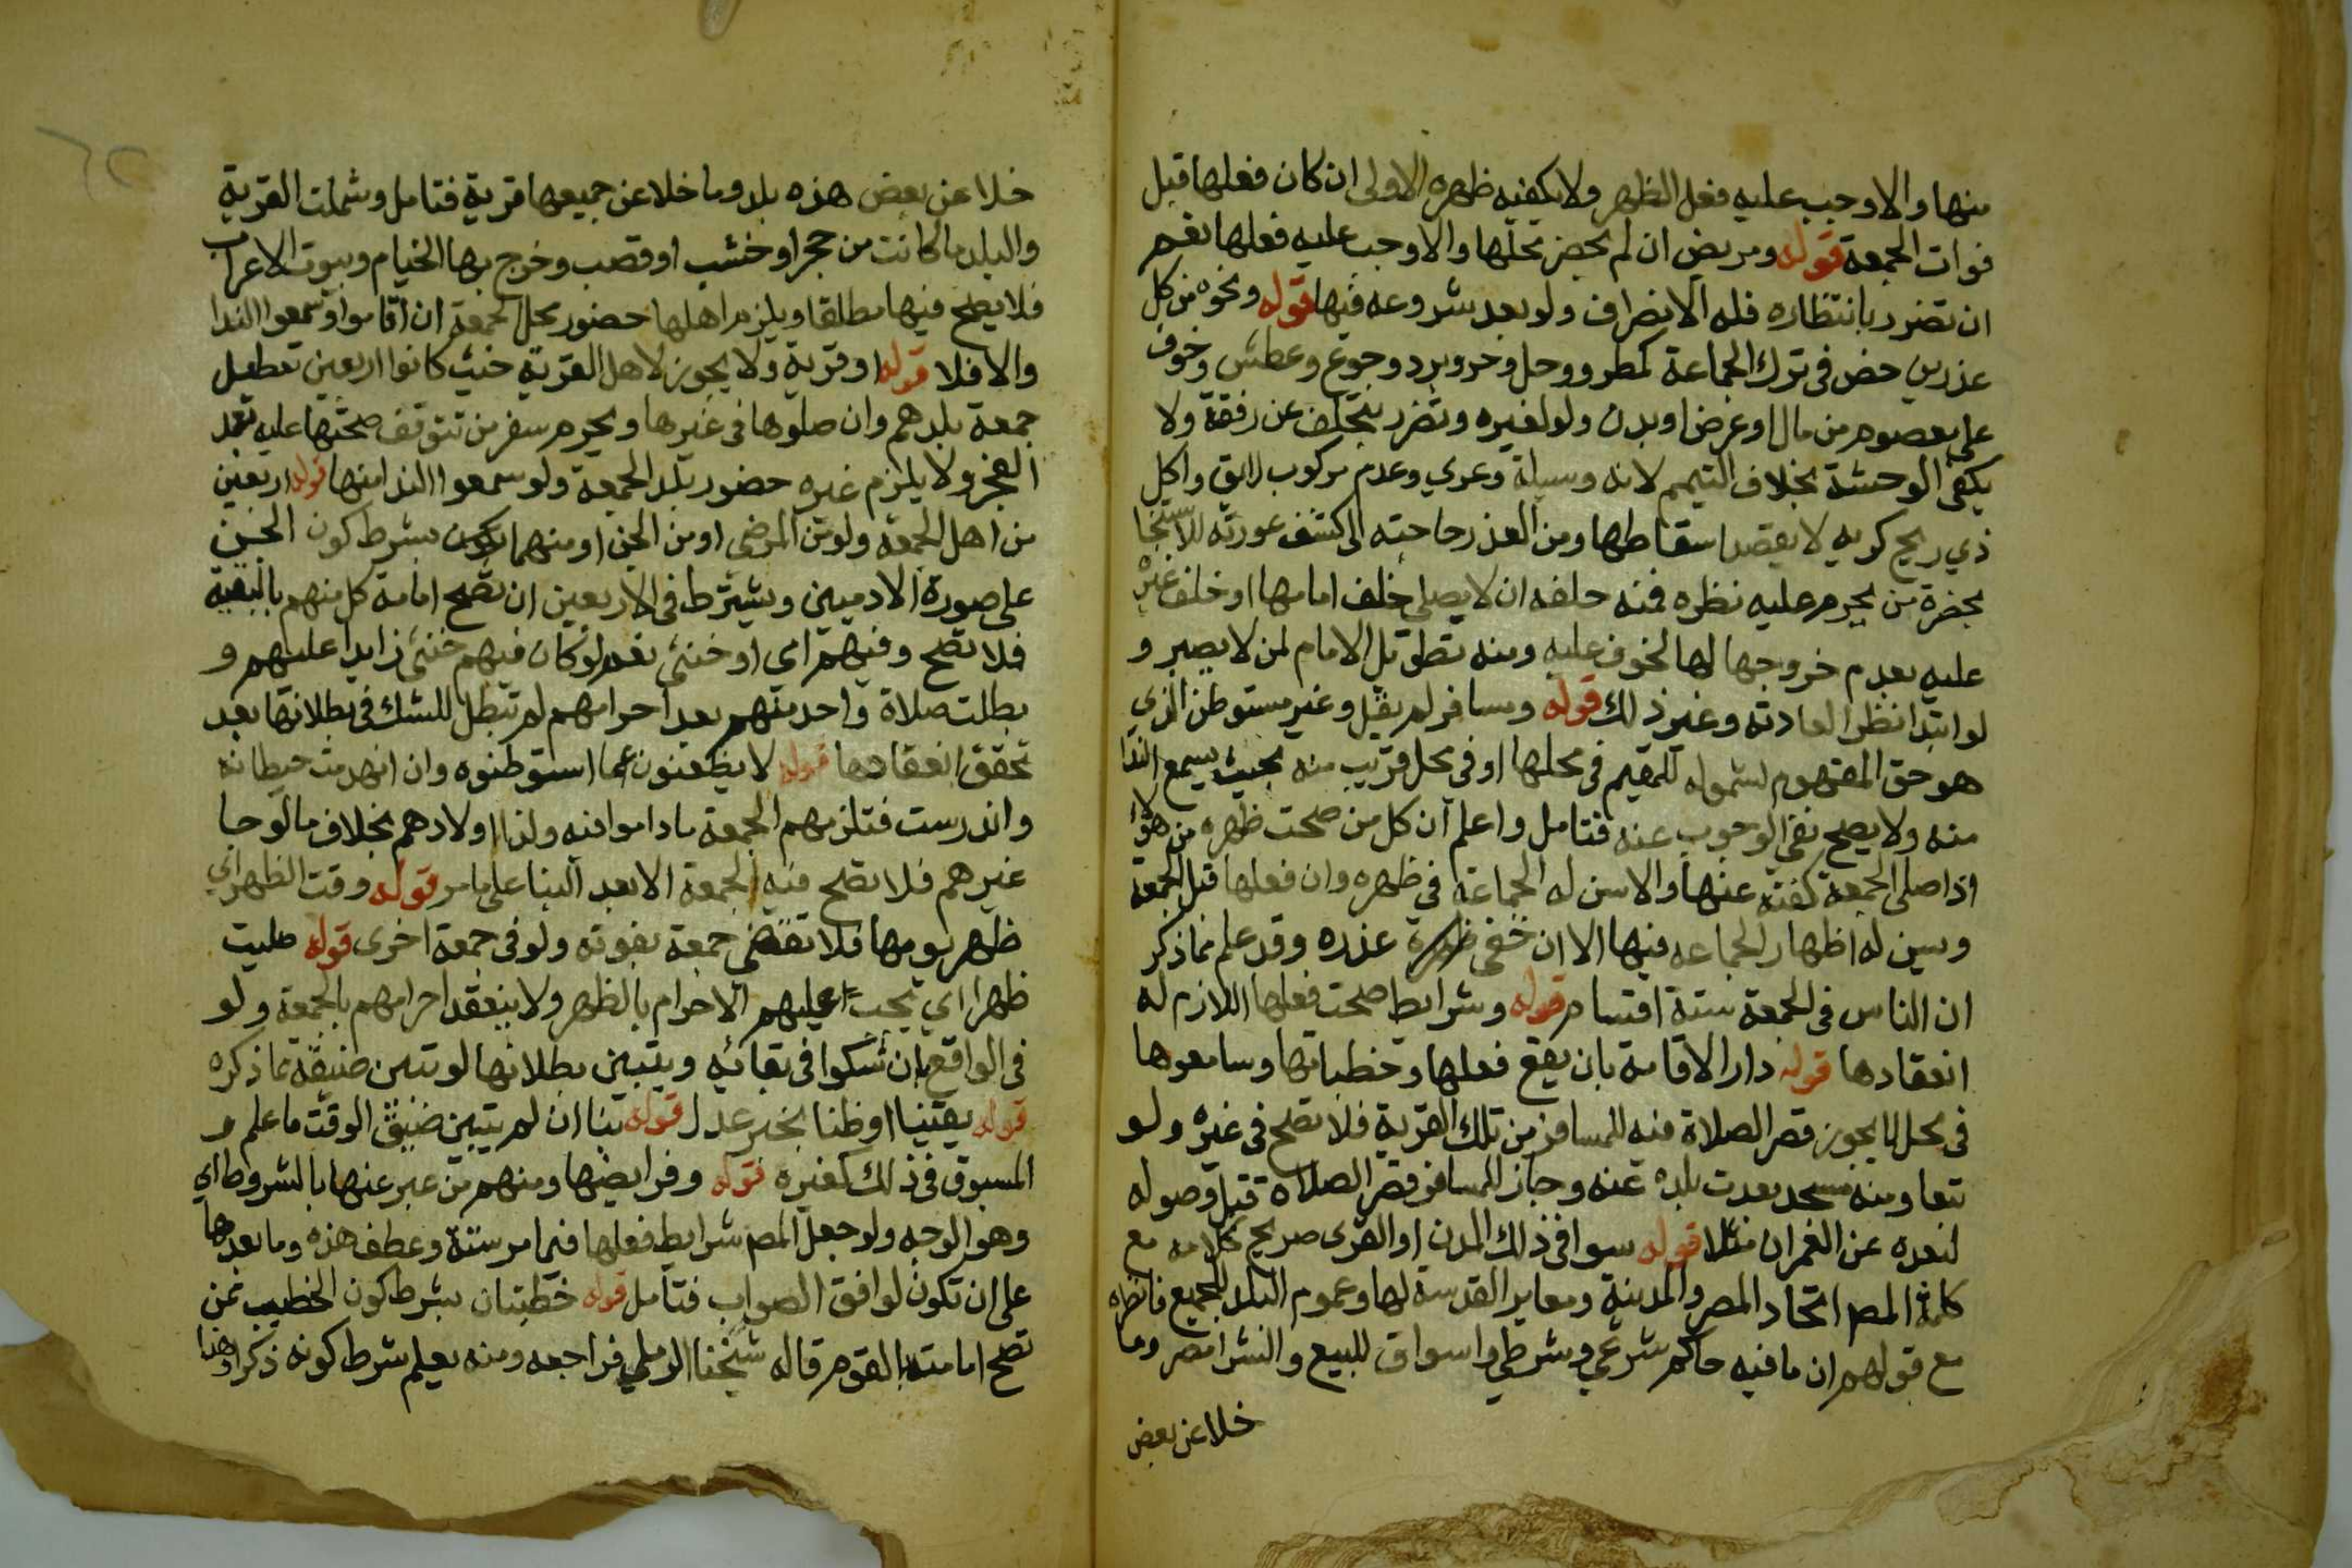 منها والا وجب عليه فعل الظهر ولا يكفيه ظهره الاولى ان كان فعلها قبل
فوات الجمعة قوله ومريض ان لم يحضر محلها والا وجب عليه فعلها نعم
ان تضرر بانتظاره فله الانصراف ولو بعد شروعه فيها قوله ونحوه من كل
عذر من خص في ترك الجماعة كمطر ووحل وحر وبرد وجوع وعطش وخوف
على معصوم من مال او عرض او بدن ولو لغيره وتضرر بتخلف عن رفقة ولا
يكفي الوحشة بخلاف التيمم لانه وسيلة وعري وعدم مركوب لائق واكل
ذي ريح كريه لا بقصد اسقاطها ومن العذر حاجته الى كشف عورته للاستنجا
بحضرة من يحرم عليه نظره فمنه حلفه ان لا يصلي خلف امامها او خلف غيره
عليه بعدم خروجها لها لخوف عليه ومنه تطويل الامام لمن لا يصبر و
لو ابتدا نظرا لعادته وغير ذلك قوله ومسافر لم يقل وغير مستوطن الذي
هو حق المفهوم لشموله للمقيم في محلها او في محل قريب منه بحيث يسمع الندا
منه ولا يصح نفي الوجوب عنه فتامل واعلم ان كل من صحت ظهره من هؤلا
اذا صلى الجمعة كفته عنها والا سن له الجماعة في ظهره وان فعلها قبل الجمعة
وسن له اظهار الجماعه فيها الا ان خفي عذره وقد علم مما ذكر
ان الناس في الجمعة ستة اقسام قوله وشرايط صحت فعلها اللازم له
انعقادها قوله دار الاقامة بان يقع فعلها وخطباتها وسامعوها
في محل لا يجوز قصر الصلاة فيه للمسافر من تلك القرية فلا تصح في غيره ولو
تبعا ومنه مسجد بعدت بلده عنه وجاز للمسافر قصر الصلاة قبل وصوله
لبعده عن العمران مثلا قوله سوا في ذلك المدن او القرى صريح كلامه مع
كلمة المص اتحاد المصر والمدينة ومغاير القرية لها وعموم البلد للجميع فانظره
مع قولهم ان ما فيه حاكم شرعي وشرطي واسواق للبيع والشرا مصر وما
خلا عن بعض
خلا عن بعض هذه بلد وما خلا عن جميعها قرية فتامل وشملت القرية
والبلد ما كانت من حجر او خشب او قصب وخرج بها الخيام وبيوت الاعراب
فلا يصح فيها مطلقا ويلزم اهلها حضور محل الجمعة ان اقاموا وسمعوا الندا
والا فلا قوله او قرية ولا يجوز لاهل القرية حيث كانوا اربعين تعطيل
جمعة بلدهم وان صلوها في غيرها ويحرم سفر من تتوقف صحتها عليه بعد
الفجر ولا يلزم غيره حضور بلد الجمعة ولو سمعوا الندا منها قوله اربعين
من اهل الجمعة ولو من المرضى او من الجن او منهما بشرط كون الجن
على صورة الادميين ويشترط في الاربعين ان تصح امامة كل منهم بالبقية
فلا تصح وفيهم امي او خنثى نعم لو كان فيهم خنثى زايدا عليهم و
بطلت صلاة واحد منهم بعد احرامهم لم تبطل للشك في بطلانها بعد
تحقق انعقادها قوله لا يظعنون عما استوطنوه وان انهدمت حيطانه
واندرست فتلزمهم الجمعة ما داموا فيه ولذا اولادهم بخلاف ما لو جا
غيرهم فلا تصح فيه الجمعة الا بعد البنا على ما مر قوله وقت الظهر اي
ظهر يومها فلا تقضى جمعة بفوته ولو في جمعة اخرى قوله صليت
ظهرا اي يجب عليهم الاحرام بالظهر ولا ينعقد احرامهم بالجمعة ولو
في الواقع بان شكوا في بقائه ويتبين بطلانها لو تبين ضيقه بما ذكره
قوله يقينيا او ظنا بخبر عدل قوله بنا ان لم يتبين ضيق الوقت ما علم و
المسبوق في ذلك كغيره قوله وفرايضها ومنهم من عبر عنها بالشروط اي
وهو الوجه ولو جعل المص شرايط فعلها فيما مر ستة وعطف هذه وما بعدها
على ان تكون لوافق الصواب فتامل قوله خطبتان بشرط كون الخطيب ممن
تصح امامته بالقوم قاله شيخنا الرملي فراجعه ومنه يعلم شرط كونه ذكرا وهذا